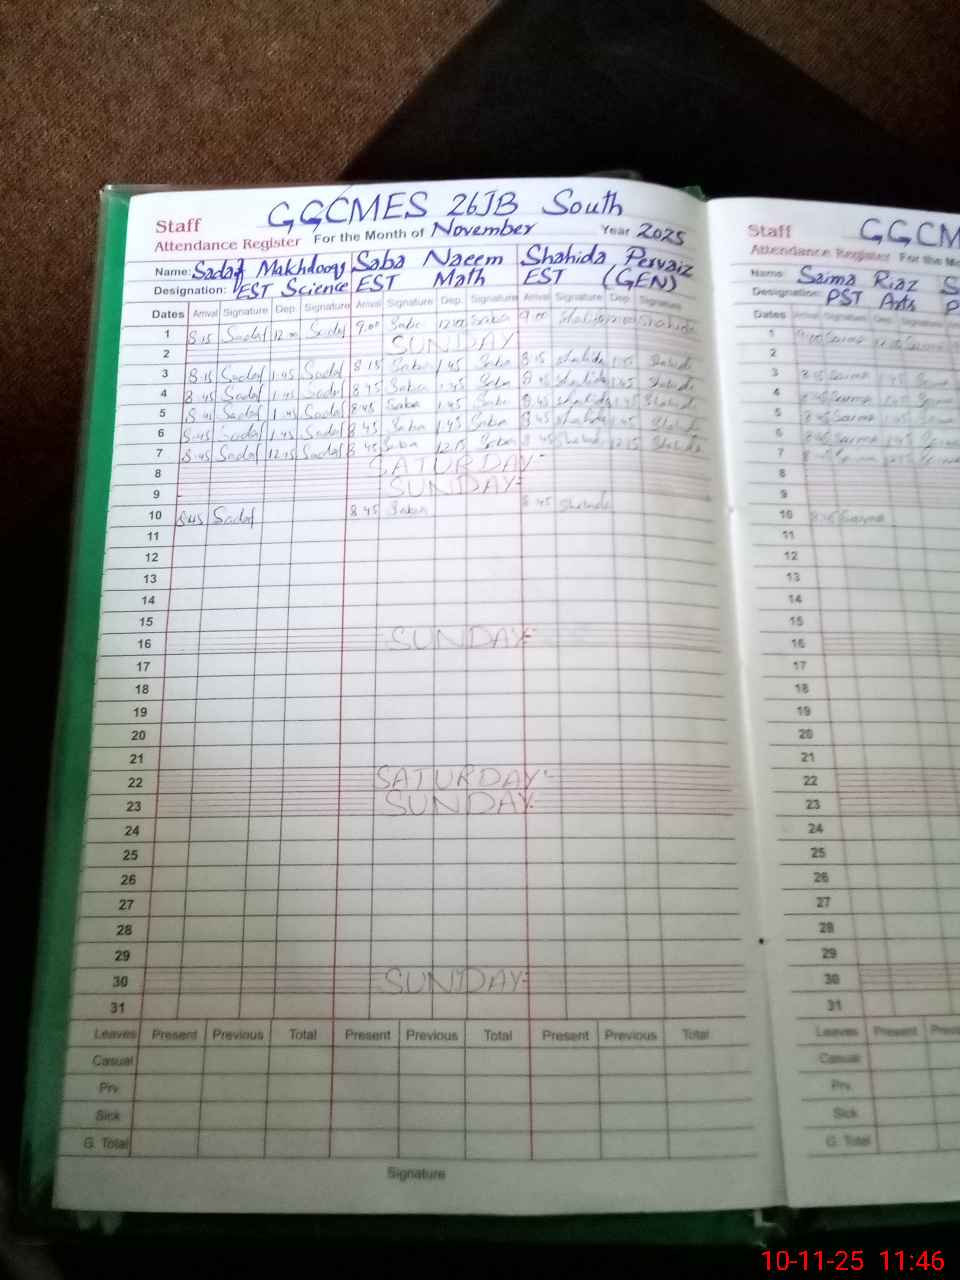 GGCMES 26JB South
Staff
Attendance Register For the Month of November Year 2025
Name: Sadaf Makhdoom Saba Naeem Shahida Pervaiz
Designation: EST Science EST Math EST (GEN)
Dates Arrival Signature Dep. Signature Arrival Signature Dep. Signature Arrival Signature Dep. Signature
1 8 15 Sadaf 12 00 Sadaf 9.00 Saba 12 00 Saba 9 00 Shahida 12 00 Shahida
2 SUNDAY
3 8 15 Sadaf 1.45 Sadaf 8 15 Saba 1.45 Saba 8 15 Shahida 1.45 Shahida
4 8 45 Sadaf 1.45 Sadaf 8 45 Saba 1.45 Saba 8 45 Shahida 1.45 Shahida
5 8.45 Sadaf 1.45 Sadaf 8.45 Saba 1.45 Saba 8.45 Shahida 1.45 Shahida
6 8.45 Sadaf 1.45 Sadaf 8 45 Saba 1.45 Saba 8 45 Shahida 1.45 Shahida
7 8.45 Sadaf 12.15 Sadaf 8 45 Saba 12.15 Saba 8 45 Shahida 12 15 Shahida
8 SATURDAY
9 SUNDAY
10 8 45 Sadaf 8 45 Saba 8 45 Shahida
11
12
13
14
15
16 SUNDAY
17
18
19
20
21
22 SATURDAY
23 SUNDAY
24
25
26
27
28
29
30 SUNDAY
31
Leaves Present Previous Total Present Previous Total Present Previous Total
Casual
Prv.
Sick
G. Total
Signature
GGCM
Staff
Attendance Register For the
Name: Saima Riaz S
Designation: PST Arts P
Dates
1
2
3
4
5
6
7
8
9
10
11
12
13
14
15
16
17
18
19
20
21
22
23
24
25
26
27
28
29
30
31
Leaves Present
Casual
Prv.
Sick
G. Total
10-11-25 11:46